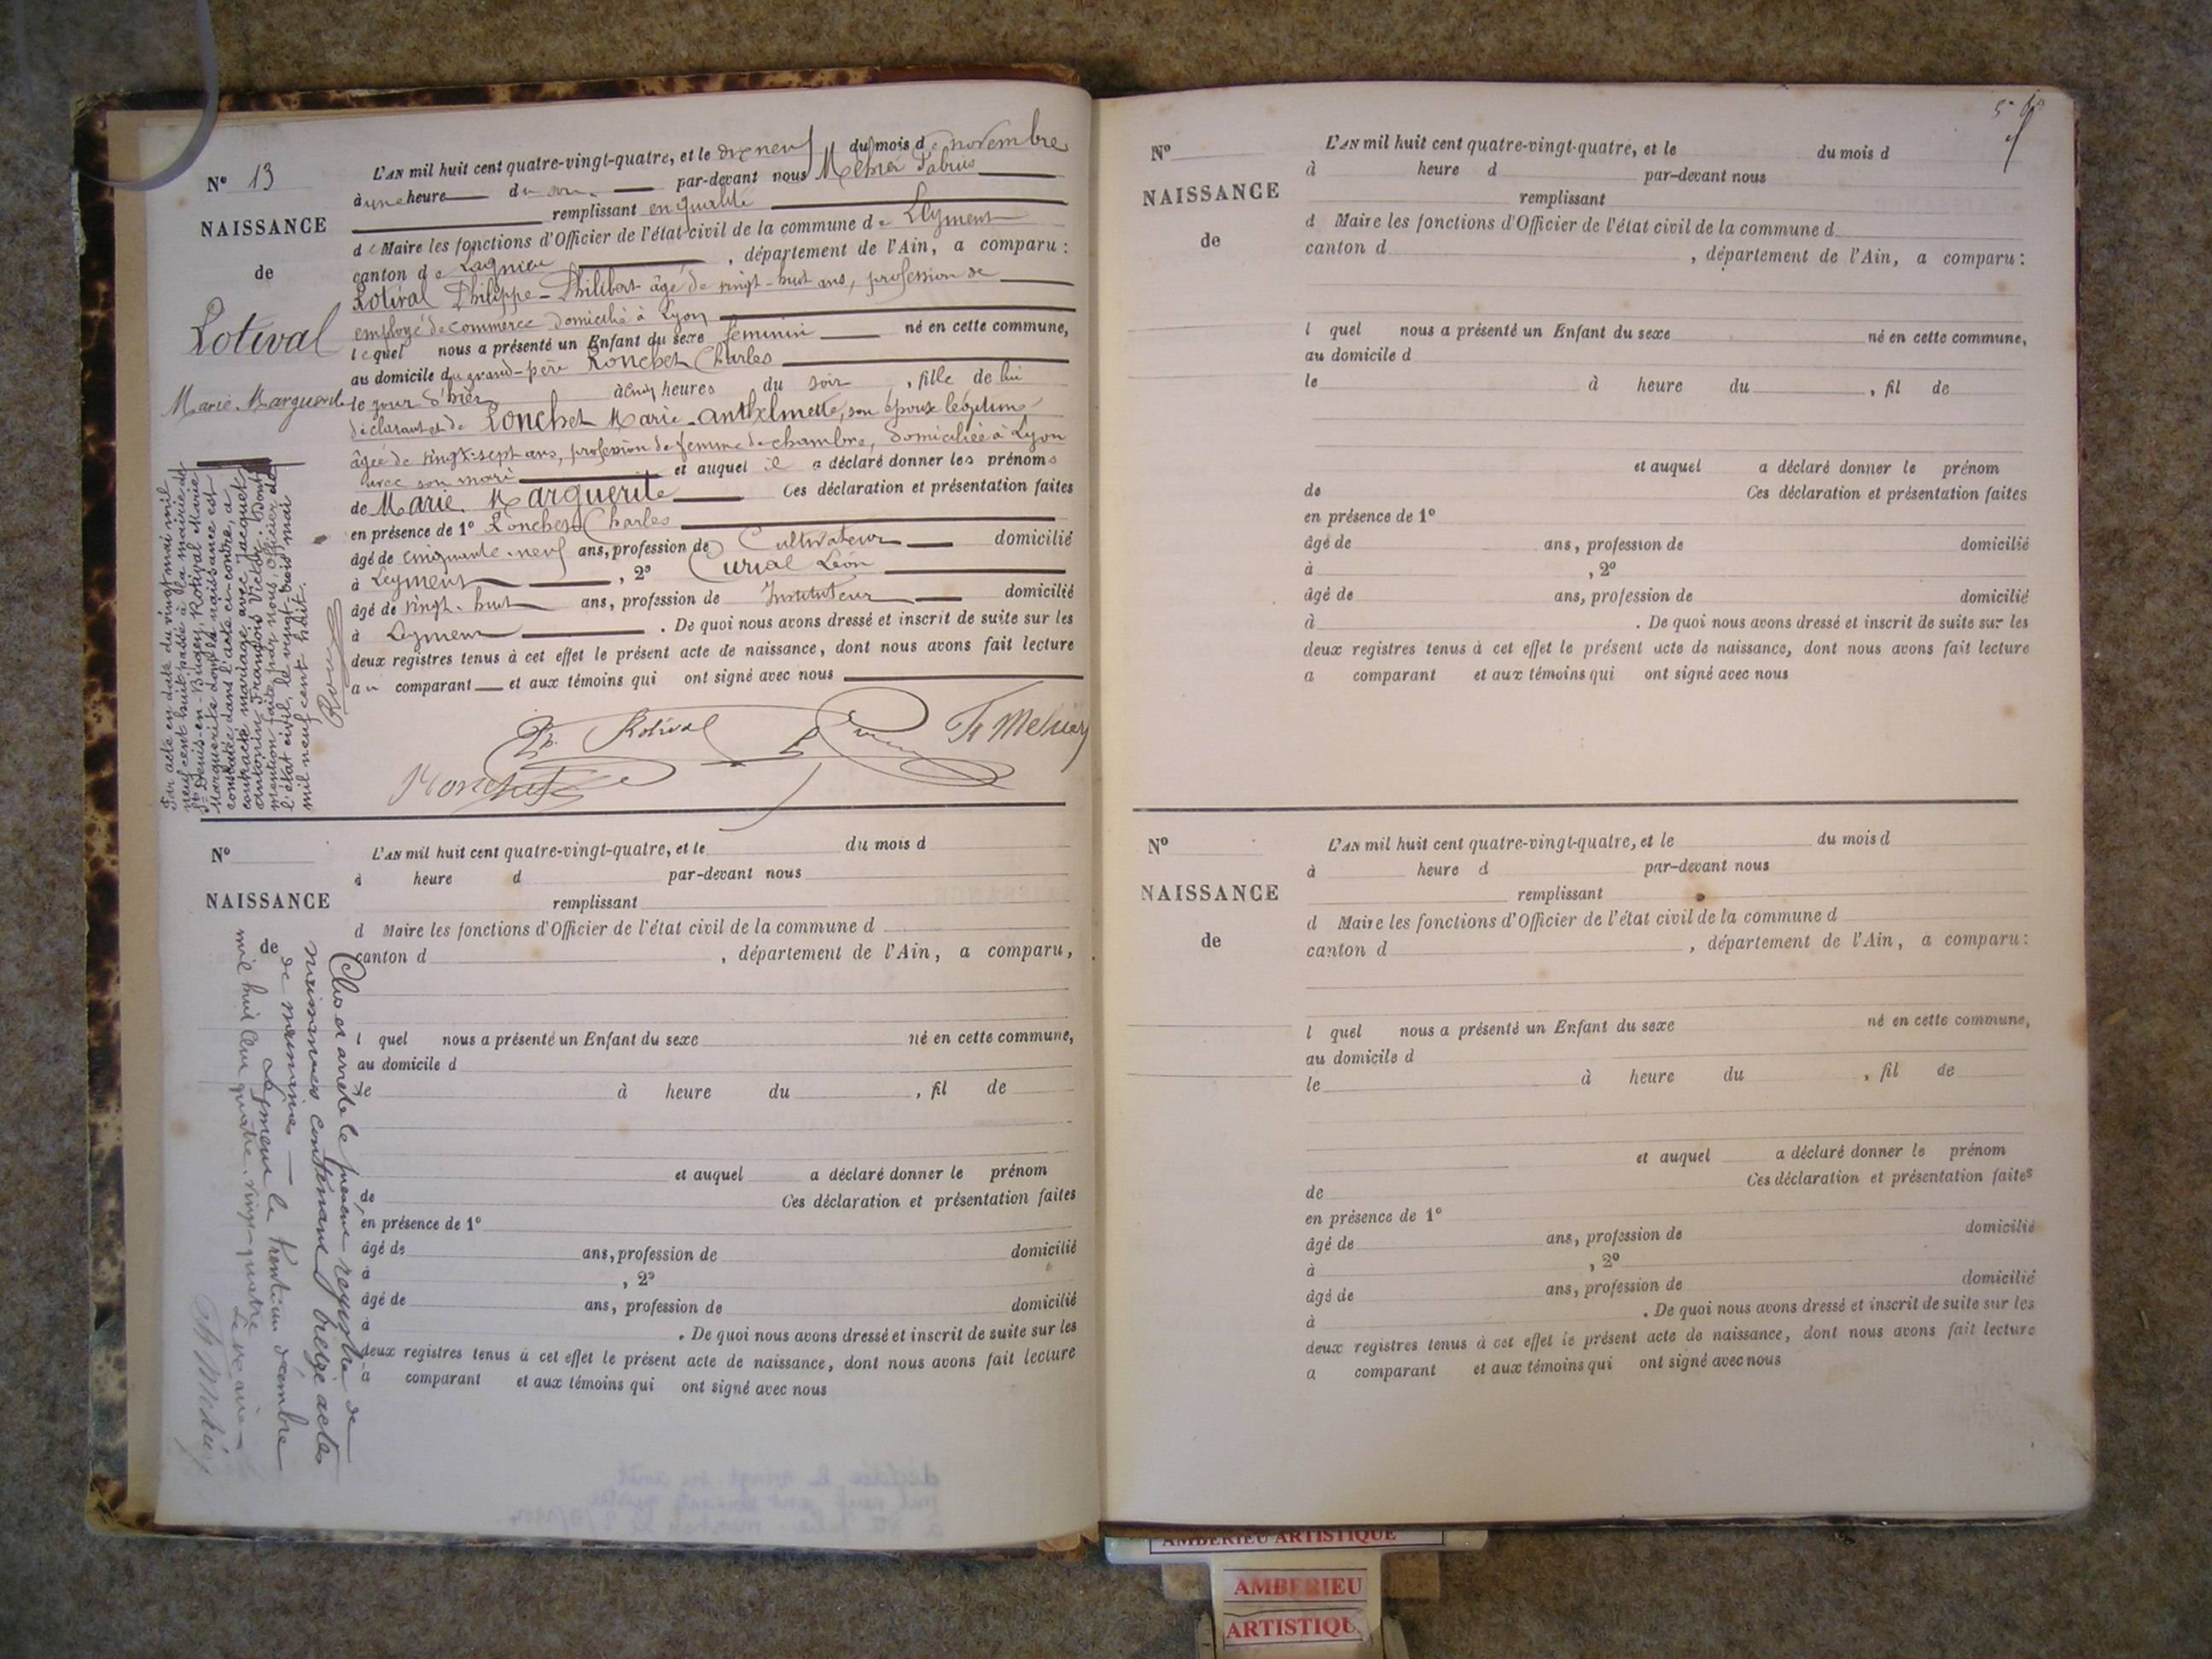 N° 13
NAISSANCE
de
Rotival
Marie Marguerite
L'AN mil huit cent quatre-vingt-quatre, et le dix neuf du mois de novembre
à une heure du soir par-devant nous
remplissant en qualité
de Maire les fonctions d'Officier de l'état civil de la commune de Leyment
canton de Lagnieu , département de l'Ain, a comparu :
Rotival Philippe-Philibert âgé de vingt-huit ans, profession de
employé de commerce domicilié à Lyon
lequel nous a présenté un Enfant du sexe féminin né en cette commune,
au domicile du grand-père Ronchet Charles
le jour d'hier à cinq heures du soir , fille de lui
déclarant et de Ronchet Marie-Anthelmette, son épouse légitime
âgée de vingt-sept ans, profession de femme de chambre, domiciliée à Lyon
avec son mari et auquel il a déclaré donner les prénoms
de Marie Marguerite Ces déclaration et présentation faites
en présence de 1° Ronchet Charles
âgé de cinquante-neuf ans, profession de Cultivateur domicilié
à Leyment , 2° Curial Léon
âgé de vingt-huit ans, profession de Instituteur domicilié
à Leyment . De quoi nous avons dressé et inscrit de suite sur les
deux registres tenus à cet effet le présent acte de naissance, dont nous avons fait lecture
au comparant et aux témoins qui ont signé avec nous
Ph. Rotival
Ronchet
Par acte en date du vingt mai mil
neuf cent huit passé à la mairie de
St Denis-en-Bugey, Rotival Marie
Marguerite dont la naissance est
constatée dans l'acte ci-contre, a
contracté mariage avec Jacquet
Antonin François Victor. Dont
mention faite par nous, Officier de
l'état civil, le vingt-trois mai
mil neuf cent huit.
N°
NAISSANCE
de
L'AN mil huit cent quatre-vingt-quatre, et le du mois d
à heure d par-devant nous
remplissant
d Maire les fonctions d'Officier de l'état civil de la commune d
canton d , département de l'Ain, a comparu,
l quel nous a présenté un Enfant du sexe né en cette commune,
au domicile d
le à heure du , fil de
et auquel a déclaré donner le prénom
de Ces déclaration et présentation faites
en présence de 1°
âgé de ans, profession de domicilié
à , 2°
âgé de ans, profession de domicilié
à . De quoi nous avons dressé et inscrit de suite sur les
deux registres tenus à cet effet le présent acte de naissance, dont nous avons fait lecture
a comparant et aux témoins qui ont signé avec nous
Clos et arrêté le présent registre de
naissances contenant treize actes
de naissances
Leyment le trente un décembre
mil huit cent quatre-vingt-quatre
Le Maire
N°
NAISSANCE
de
L'AN mil huit cent quatre-vingt-quatre, et le du mois d
à heure d par-devant nous
remplissant
d Maire les fonctions d'Officier de l'état civil de la commune d
canton d , département de l'Ain, a comparu :
l quel nous a présenté un Enfant du sexe né en cette commune,
au domicile d
le à heure du , fil de
et auquel a déclaré donner le prénom
de Ces déclaration et présentation faites
en présence de 1°
âgé de ans, profession de domicilié
à , 2°
âgé de ans, profession de domicilié
à . De quoi nous avons dressé et inscrit de suite sur les
deux registres tenus à cet effet le présent acte de naissance, dont nous avons fait lecture
a comparant et aux témoins qui ont signé avec nous
N°
NAISSANCE
de
L'AN mil huit cent quatre-vingt-quatre, et le du mois d
à heure d par-devant nous
remplissant
d Maire les fonctions d'Officier de l'état civil de la commune d
canton d , département de l'Ain, a comparu :
l quel nous a présenté un Enfant du sexe né en cette commune,
au domicile d
le à heure du , fil de
et auquel a déclaré donner le prénom
de Ces déclaration et présentation faites
en présence de 1°
âgé de ans, profession de domicilié
à , 2°
âgé de ans, profession de domicilié
à . De quoi nous avons dressé et inscrit de suite sur les
deux registres tenus à cet effet le présent acte de naissance, dont nous avons fait lecture
a comparant et aux témoins qui ont signé avec nous
AMBERIEU ARTISTIQUE
AMBERIEU
ARTISTIQU